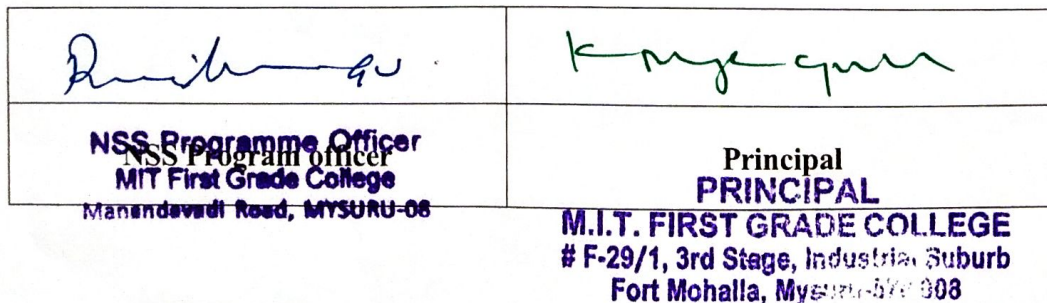 NSS Programme Officer
NSS Program officer
MIT First Grade College
Manandavadi Road, MYSURU-08
Principal
PRINCIPAL
M.I.T. FIRST GRADE COLLEGE
# F-29/1, 3rd Stage, Industrial Suburb
Fort Mohalla, Mysuru-570 008